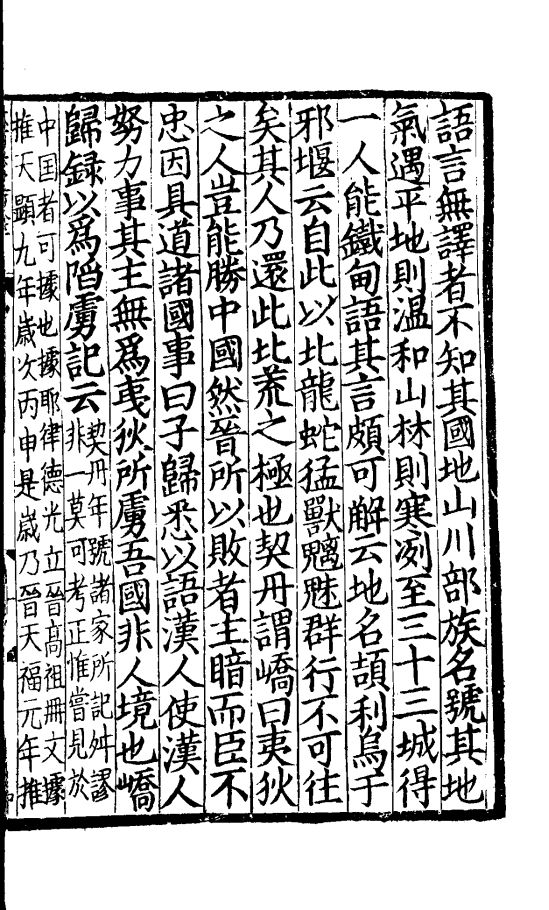 語言無譯者不知其國地山川部族名號其地
氣遇平地則温和山林則寒冽至三十三城得
一人能鐵甸語其言頗可解云地名頡利烏于
邪堰云自此以北龍蛇猛獸魑魅群行不可往
矣其人乃還此北荒之極也契丹謂嶠曰夷狄
之人豈能勝中國然晉所以敗者主暗而臣不
忠因具道諸國事曰子歸悉以語漢人使漢人
努力事其主無爲夷狄所虜吾國非人境也嶠
歸録以爲陷虜記云
契丹年號諸家所記舛謬
非一莫可考正惟嘗見於
中囯者可據也據耶律德光立晉高祖冊文據
推天顯九年歲次丙申是歲乃晉天福元年推